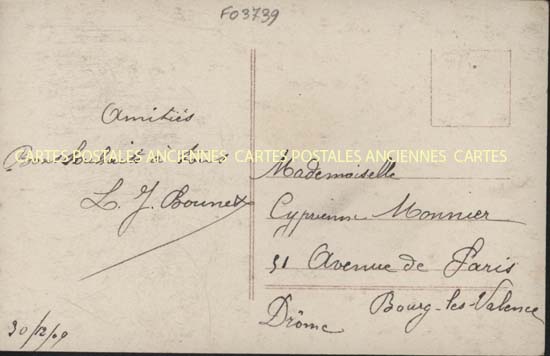 F03739
Amitiés
Bons Souhaits à tous
L. J. Bounet
30/12/09
CARTES POSTALES ANCIENNES CARTES POSTALES ANCIENNES CARTES
Mademoiselle
Cyprienne Monnier
51 Avenue de Paris
Bourg-les-Valence
Drôme